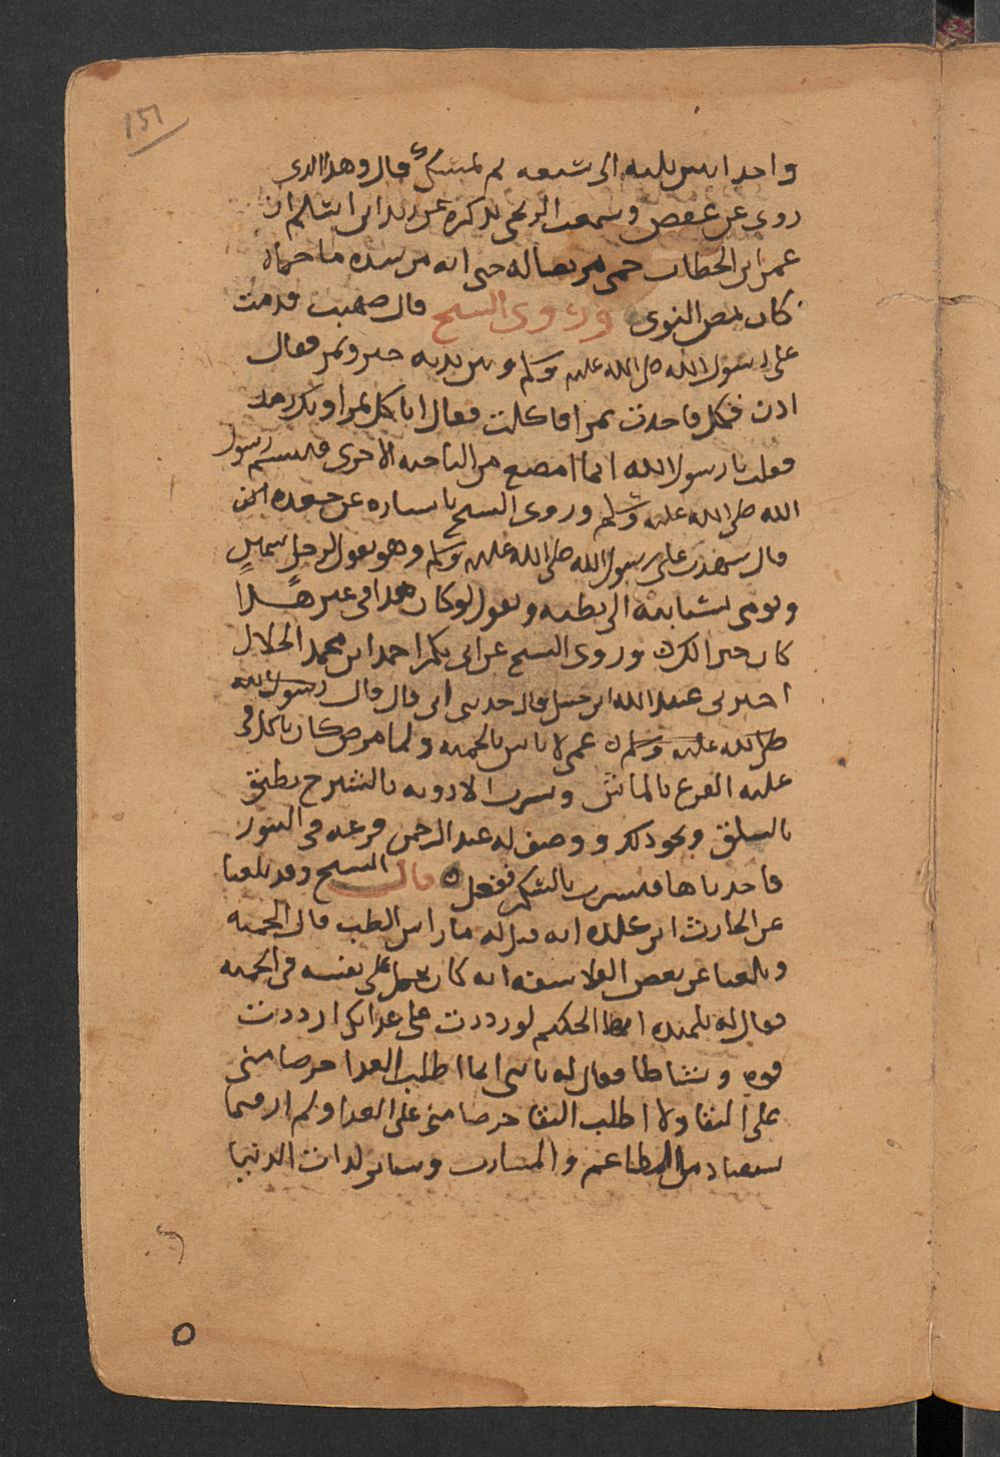 151
واحد ابن بليه الى شبعه لم يشتكى قال وهذا الذى
روى عن عفص وسمعت الزنجى يذكره عن زيد ابن اسلم ان
عمر ابن الخطاب حمى مريضا له حتى انه من شده ما حماه
كان يمص النوى وروى الشيخ قال صهيب قدمت
على رسول الله صلى الله عليه وسلم وبين يديه خبز وتمر فقال
ادن فكل فاخذت تمرا فاكلت فقال اتاكل تمرا وبك رمد
فقلت يا رسول الله انما امضغ من الناحيه الاخرى فتبسم رسول
الله صلى الله عليه وسلم وروى الشيخ باسناده عن جعده
قال شهدت على رسول الله صلى الله عليه وسلم وهو يقول لرجل سمين
ويومى بسبابته الى بطنه ويقول لو كان هذا فى غير هذا
كان خيرا لك وروى الشيخ عن ابى بكر احمد ابن محمد الخلال
اخبرنى عبد الله ابن حنبل قال حدثنى ابى قال قال رسول الله
صلى الله عليه وسلم لا باس بالحميه ولما مرض كان ياكل فى
علته القرع بالماش وشرب الادويه بالشيرج يطبق
بالسلق ونحو ذلك ووصف له عبد الرحمن قرعه فى التنور
فاخذ ماها فشرب بالسكر ففعل قال الشيخ وقد بلغنا
عن الحارث ابن كلده انه قيل له ما راس الطب قال الحميه
وبلغنا عن بعض الفلاسفه انه كان يحمل على نفسه فى الحميه
فقال له تلميذه ايها الحكيم لو زدت على غداك ازددت
قوه ونشاطا فقال له يا بنى انما اطلب الغدا حرصا منى
على البقا ولا اطلب البقا حرصا منى على الغدا ولم ار فيما
يستفاد من المطاعم والمشارب وساير لذات الدنيا